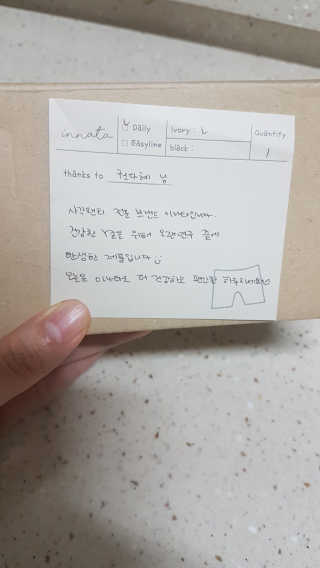 innata
Daily
Easyline
Ivory : L
black :
Quantity
1
thanks to 천다혜 님
사각팬티 전문 브랜드 이너타입니다.
건강한 Y존을 위해 오랜연구 끝에
탄생한 제품입니다
오늘은 이너타로 더 건강하고 편안한 하루되세요